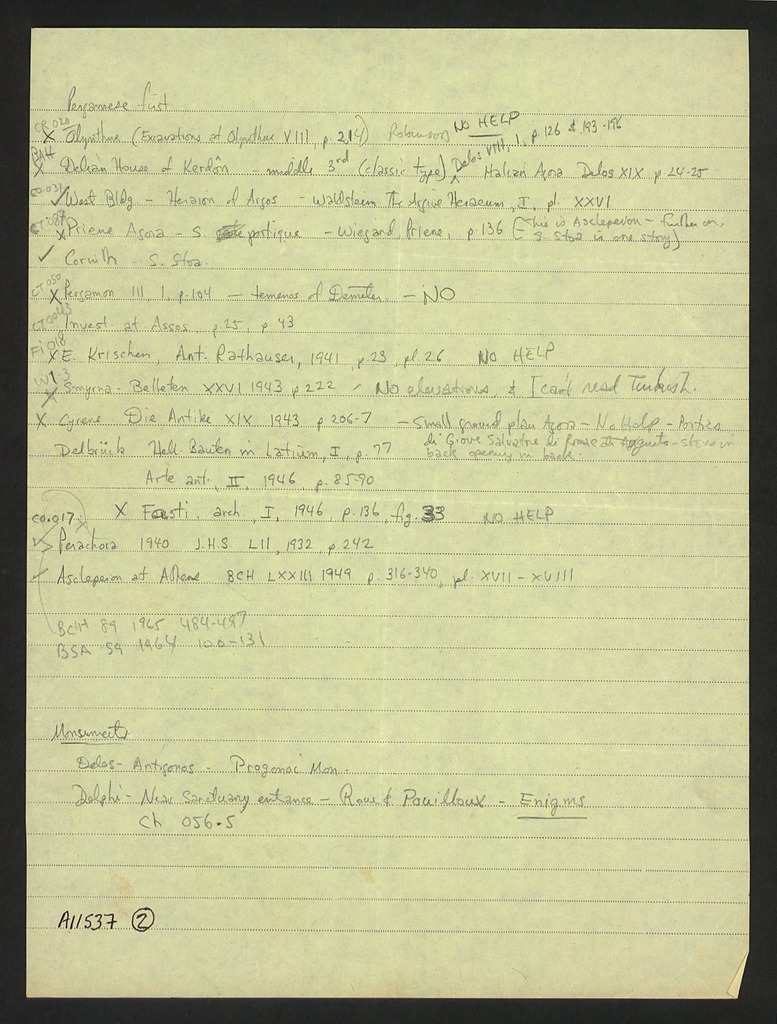 Pergamese first
CR.020 X Olynthus (Excavations at Olynthus VIII, p. 214) Robinson NO HELP
BA4 X Delian House of Kerdôn - middle 3rd (classic type) Delos VIII, 1, p 126 & 193-196 Italian Agora Delos XIX p 24-25
CO.031 ✓ West Bldg - Heraion of Argos - Waldstein The Argive Heraeum, I, pl XXVI
CT087 X Priene Agora - S portique - Wiegand, Priene, p.136 (- This is Asclepeion - further on,
S Stoa is one story)
✓ Corinth - S. Stoa.
CT050 X Pergamon III, 1, p.104 - temenos of Demeter. - NO
CT0043 Invest at Assos p.25, p 43
Fi018 X E. Krischen, Ant. Rathauser, 1941 p.23 pl.26 NO HELP
W1-3 X Smyrna - Belleten XXVI 1943 p 222 - No elevations, & I can't read Turkish.
X Cyrene Die Antike XIX 1943 p 206-7 - Small ground plan Agora - No Help - Portico
di Giove Salvatore di Rome
Delbrück Hell. Bauten in Latium, I, p. 77 back opening in back
Arte ant., II, 1946 p. 85-90
X Fasti. arch. I, 1946, p.136, fig. 33 NO HELP
CO.017 ✓ Perachora 1940 J.H.S LII, 1932 p.242
✓ Asclepeion at Athens BCH LXXIII 1949 p. 316-340, pl. XVII - XVIII
BCH 89 1965 484-497
BSA 59 1964 100-131
Monuments
Delos - Antigonos - Progonoi Mon.
Delphi - Near Sanctuary entrance - Roux & Pouilloux - Enigms
Ch 056.5
A11537 2